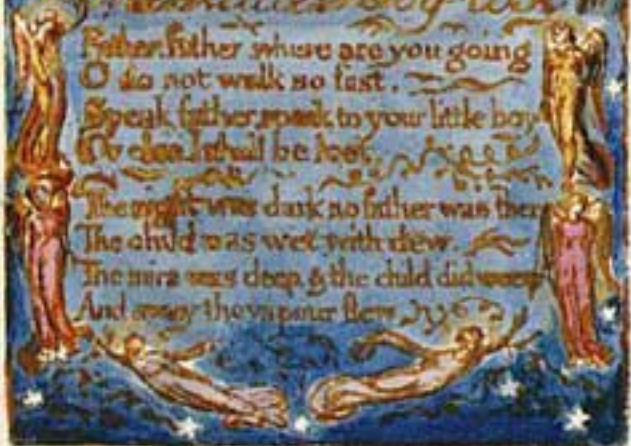 Little boy lost
Father, father where are you going
O do not walk so fast.
Speak father, speak to your little boy
Or else I shall be lost,
The night was dark no father was there
The child was wet with dew.
The mire was deep, & the child did weep
And away the vapour flew.